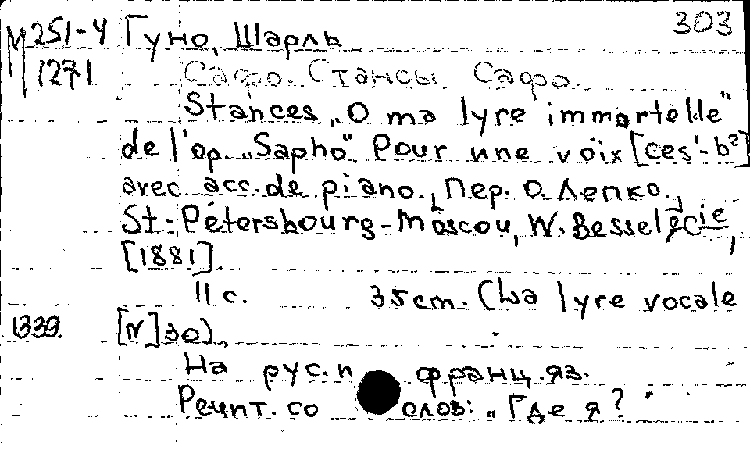 303
М 251-4 Гуно, Шарль
1271 Сафо. Стансы Сафо.
Stances „O ma lyre immortelle"
de l'op. „Sapho" Pour une voix [ces'-b²]
avec acc. de piano. Пер. О. Лепко.
St-Pétersbourg-Moscou, W. Bessel & Cie,
[1881].
11 с. 35 cm. (La lyre vocale
1339. [N] 30).
На рус. и франц. яз.
Речит. со слов: „Где я?"